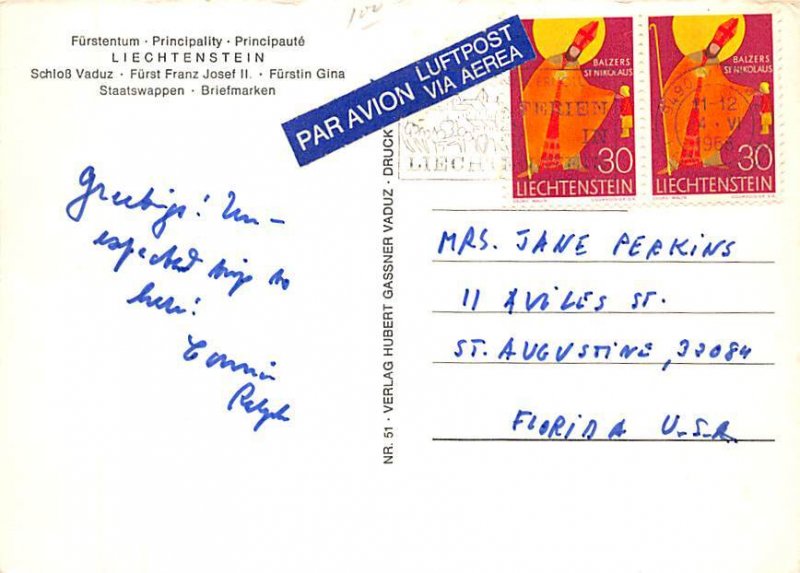 100
Fürstentum · Principality · Principauté
LIECHTENSTEIN
Schloß Vaduz · Fürst Franz Josef II. · Fürstin Gina
Staatswappen · Briefmarken
PAR AVION LUFTPOST
VIA AEREA
BALZERS
ST NIKOLAUS
30
LIECHTENSTEIN
BALZERS
ST NIKOLAUS
30
LIECHTENSTEIN
FERIEN
IN
LIECHTENSTEIN
9490
11-12
4. VI
Greetings! Un-
expected trip to
here!
Connie
Ralph
NR. 51 · VERLAG HUBERT GASSNER VADUZ · DRUCK
MRS. JANE PERKINS
11 AVILES ST.
ST. AUGUSTINE, 32084
FLORIDA U.S.A.